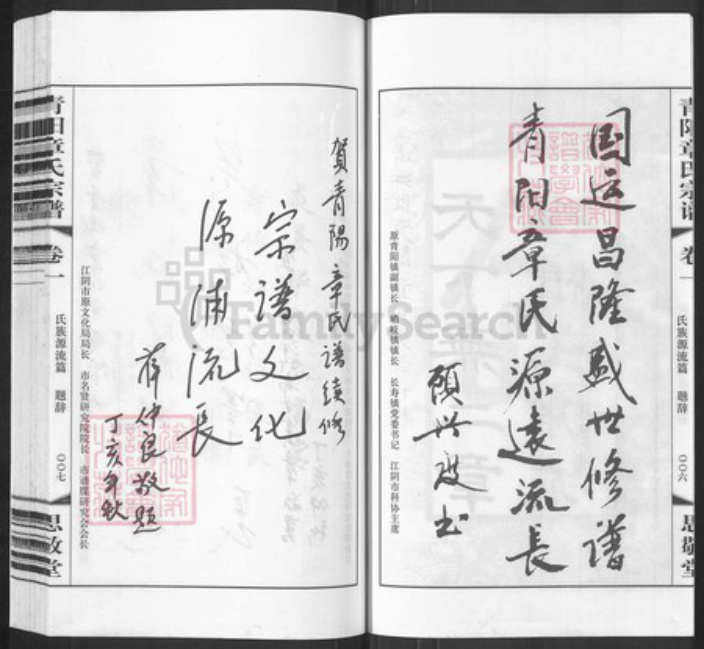 青阳章氏宗谱
卷一
氏族源流篇 题辞
〇〇六
思敬堂
国运昌隆盛世修谱
青阳章氏源远流长
顾兴
原青阳镇副镇长 峭岐镇镇长 长寿镇党委书记 江阴市科协主席
賀青陽章氏譜续修
宗譜文化
源浦流長
薛仲良敬題
丁亥年秋
江阴市原文化局局长 市名贤研究院院长 市谱牒研究会会长
青阳章氏宗谱
卷一
氏族源流篇 题辞
〇〇七
思敬堂
FamilySearch